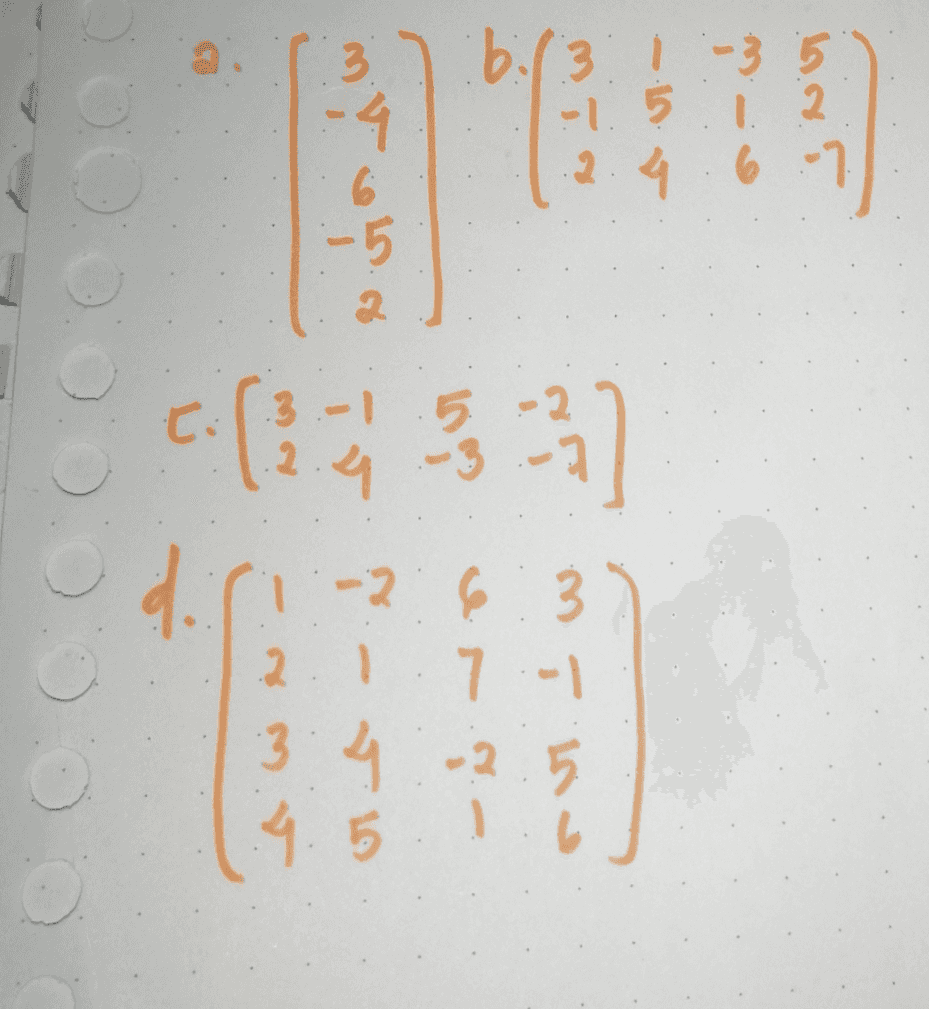 a. [3
-4
6
-5
2]
b. [3 1 -3 5
-1 5 1 2
2 4 6 -7]
c. [3 -1 5 -2
2 4 -3 -7]
d. [1 -2 6 3
2 1 7 -1
3 4 -2 5
4 5 1 6]